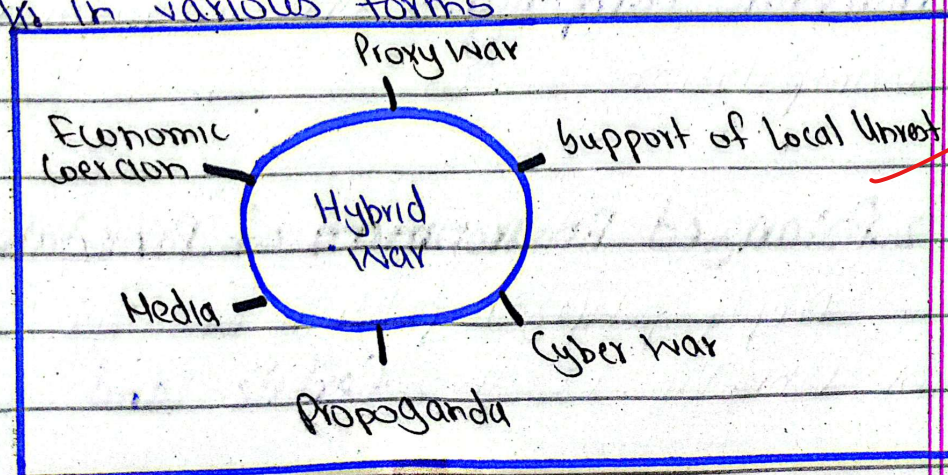 in various forms
Proxy War
Economic
Coercion
Support of Local Unrest
Hybrid
War
Media
Cyber War
Propoganda